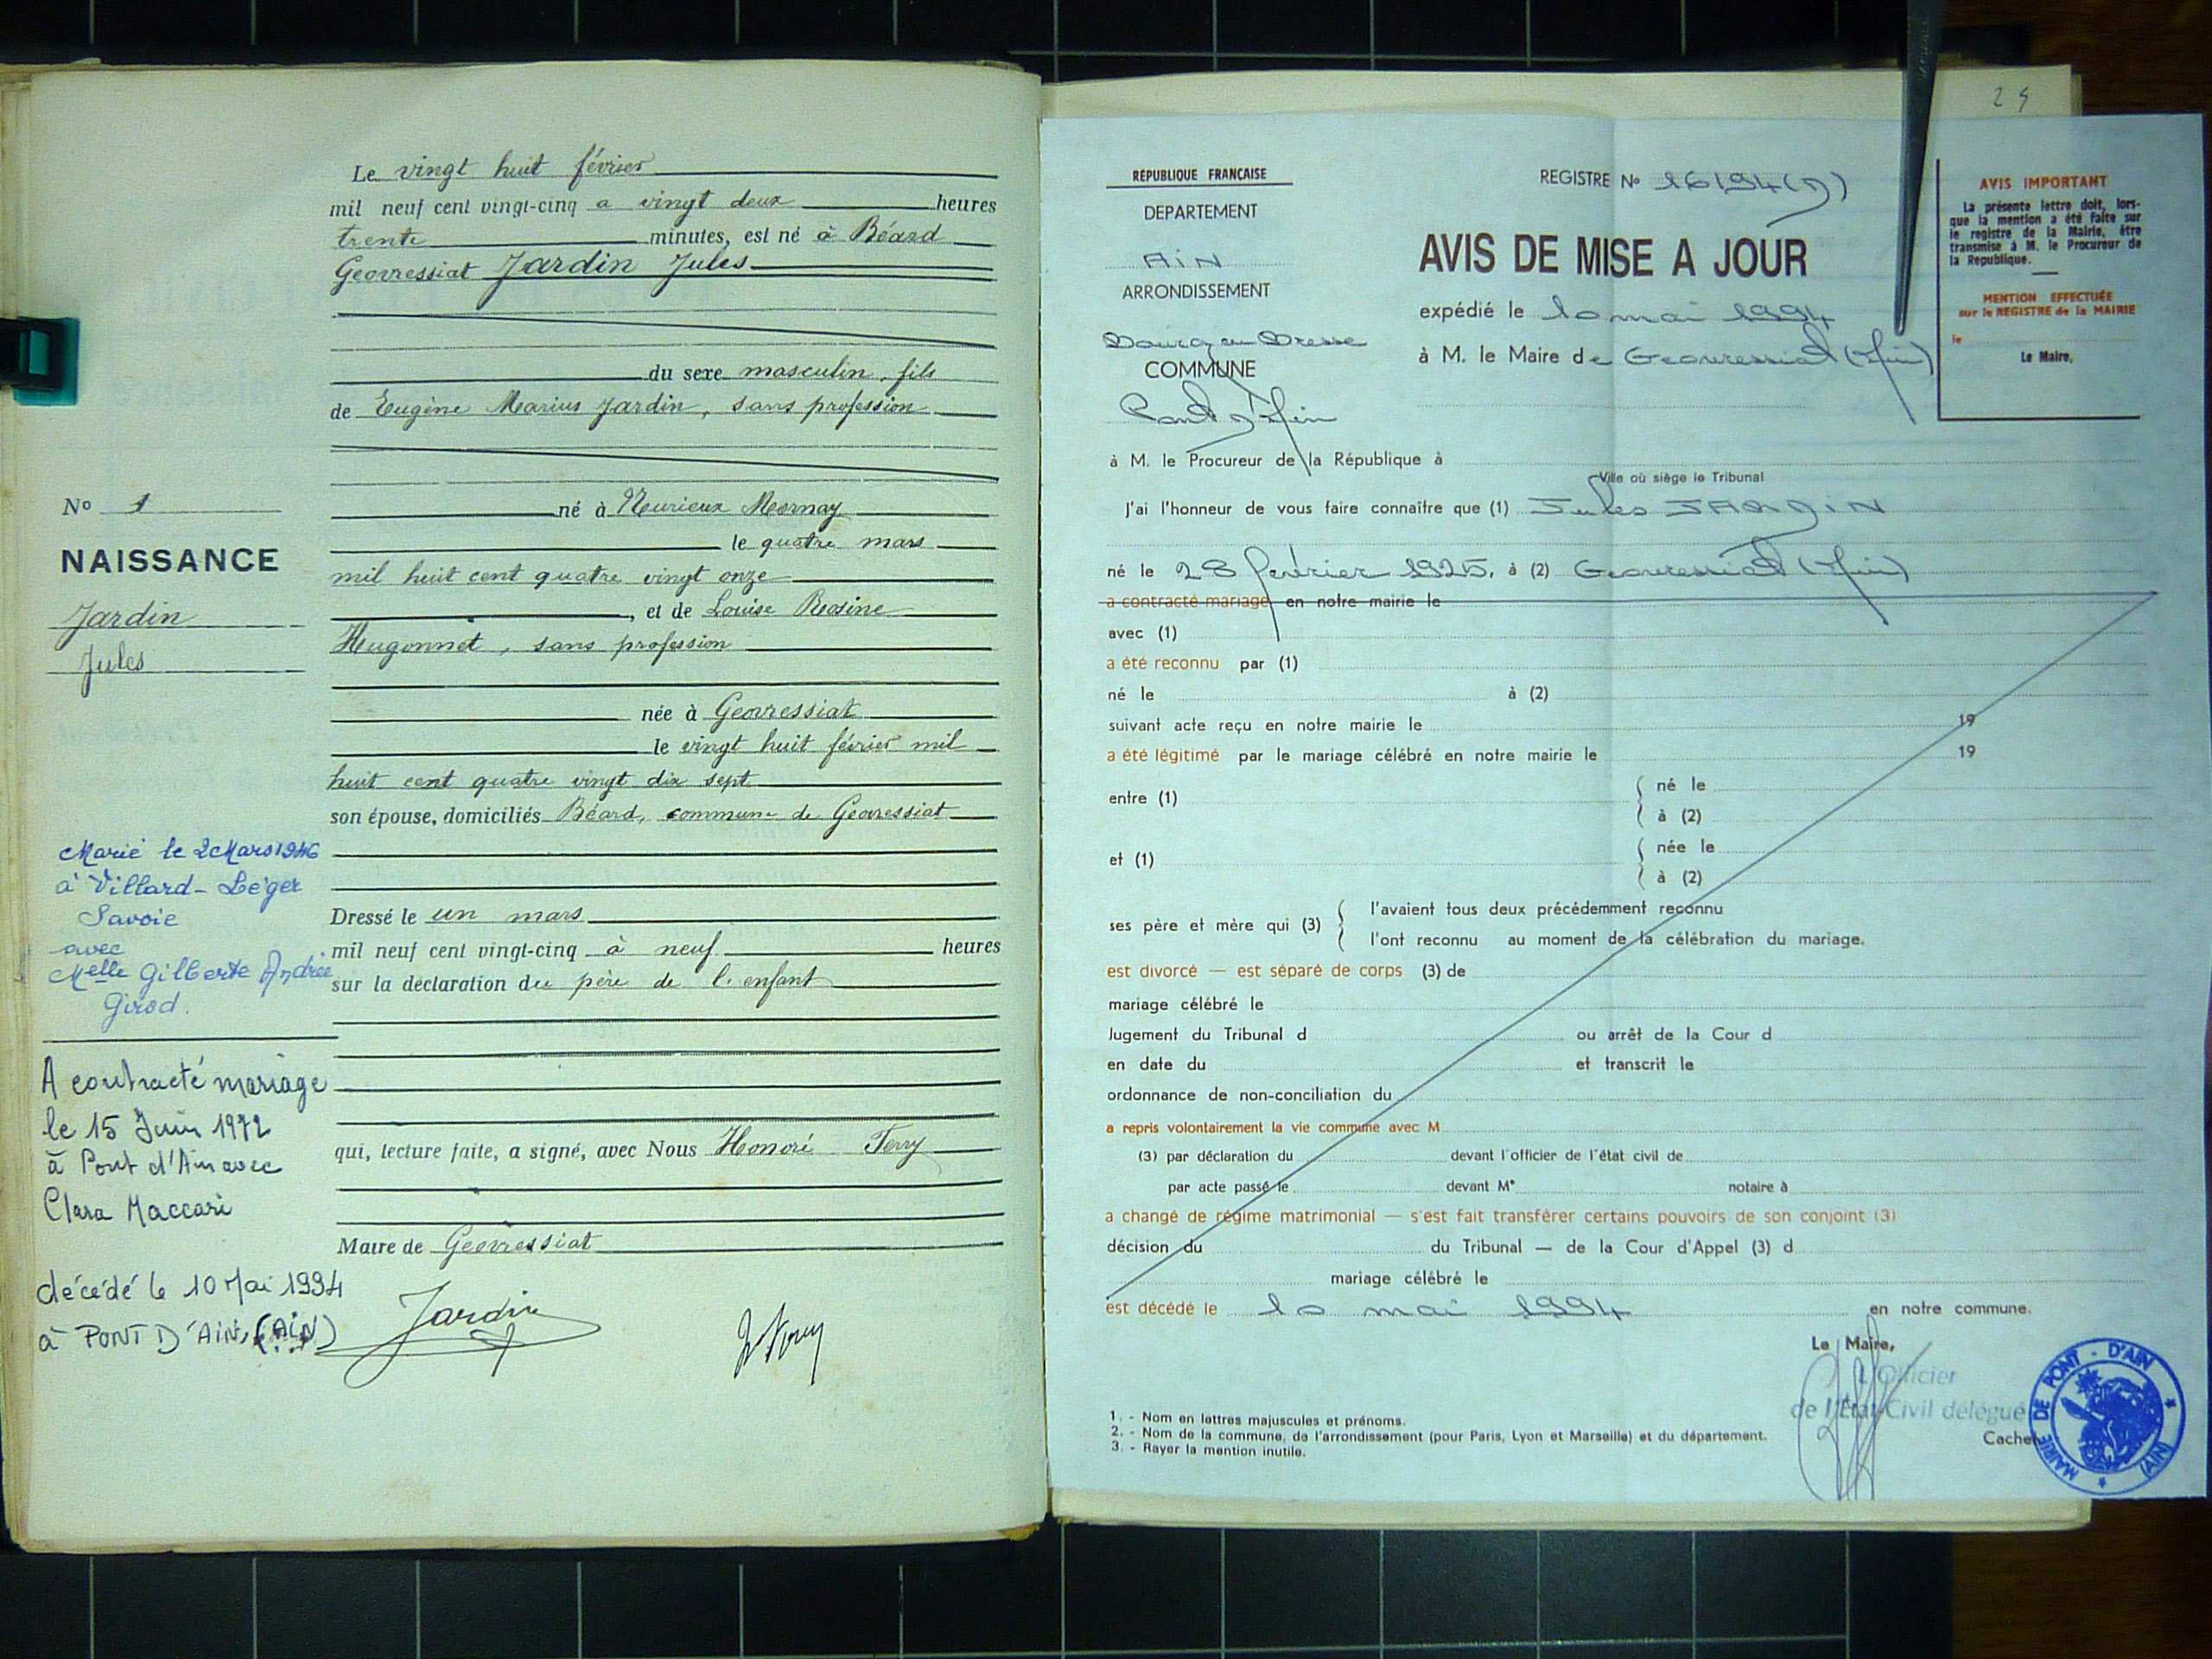 Le vingt huit février
mil neuf cent vingt-cinq a vingt deux heures
trente minutes, est né à Béard
Geovressiat Jardin Jules
du sexe masculin, fils
de Eugène Marius Jardin, sans profession
né à Nurieux Mornay
le quatre mars
mil huit cent quatre vingt onze
, et de Louise Rosine
Hugonnet, sans profession
née à Geovressiat
le vingt huit février mil
huit cent quatre vingt dix sept
son épouse, domiciliés Béard, commune de Geovressiat
Dressé le un mars
mil neuf cent vingt-cinq à neuf heures
sur la déclaration du père de l'enfant
qui, lecture faite, a signé, avec Nous Honoré Ferry
Maire de Geovressiat
Jardin
No 1
NAISSANCE
Jardin
Jules
Marié le 2 Mars 1946
à Villard-Léger
Savoie
avec
Melle Gilberte Andrée
Girod.
A contracté mariage
le 15 Juin 1972
à Pont d'Ain avec
Clara Maccari
décédé le 10 Mai 1994
à PONT D'AIN, (AIN)
RÉPUBLIQUE FRANÇAISE
DEPARTEMENT
AIN
ARRONDISSEMENT
Bourg en Bresse
COMMUNE
Pont d'Ain
REGISTRE No 16/94 (D)
AVIS DE MISE A JOUR
expédié le 10 mai 1994
à M. le Maire de Geovressiat (Ain)
AVIS IMPORTANT
La présente lettre doit, lors-
que la mention a été faite sur
le registre de la Mairie, être
transmise à M. le Procureur de
la Republique.
MENTION EFFECTUÉE
sur le REGISTRE de la MAIRIE
le
Le Maire,
à M. le Procureur de la République à
Ville où siège le Tribunal
J'ai l'honneur de vous faire connaître que (1) Jules JARDIN
né le 28 février 1925, à (2) Geovressiat (Ain)
a contracté mariage en notre mairie le
avec (1)
a été reconnu par (1)
né le à (2)
suivant acte reçu en notre mairie le 19
a été légitimé par le mariage célébré en notre mairie le 19
entre (1) né le
à (2)
et (1) née le
à (2)
ses père et mère qui (3) l'avaient tous deux précédemment reconnu
l'ont reconnu au moment de la célébration du mariage.
est divorcé — est séparé de corps (3) de
mariage célébré le
Jugement du Tribunal d ou arrêt de la Cour d
en date du et transcrit le
ordonnance de non-conciliation du
a repris volontairement la vie commune avec M
(3) par déclaration du devant l'officier de l'état civil de
par acte passé le devant Me notaire à
a changé de régime matrimonial — s'est fait transférer certains pouvoirs de son conjoint (3)
décision du du Tribunal — de la Cour d'Appel (3) d
mariage célébré le
est décédé le 10 mai 1994 en notre commune.
Le Maire,
L'Officier
de l'État-Civil délégué
Cachet
MAIRIE DE PONT - D'AIN
(AIN)
1. - Nom en lettres majuscules et prénoms.
2. - Nom de la commune, de l'arrondissement (pour Paris, Lyon et Marseille) et du département.
3. - Rayer la mention inutile.